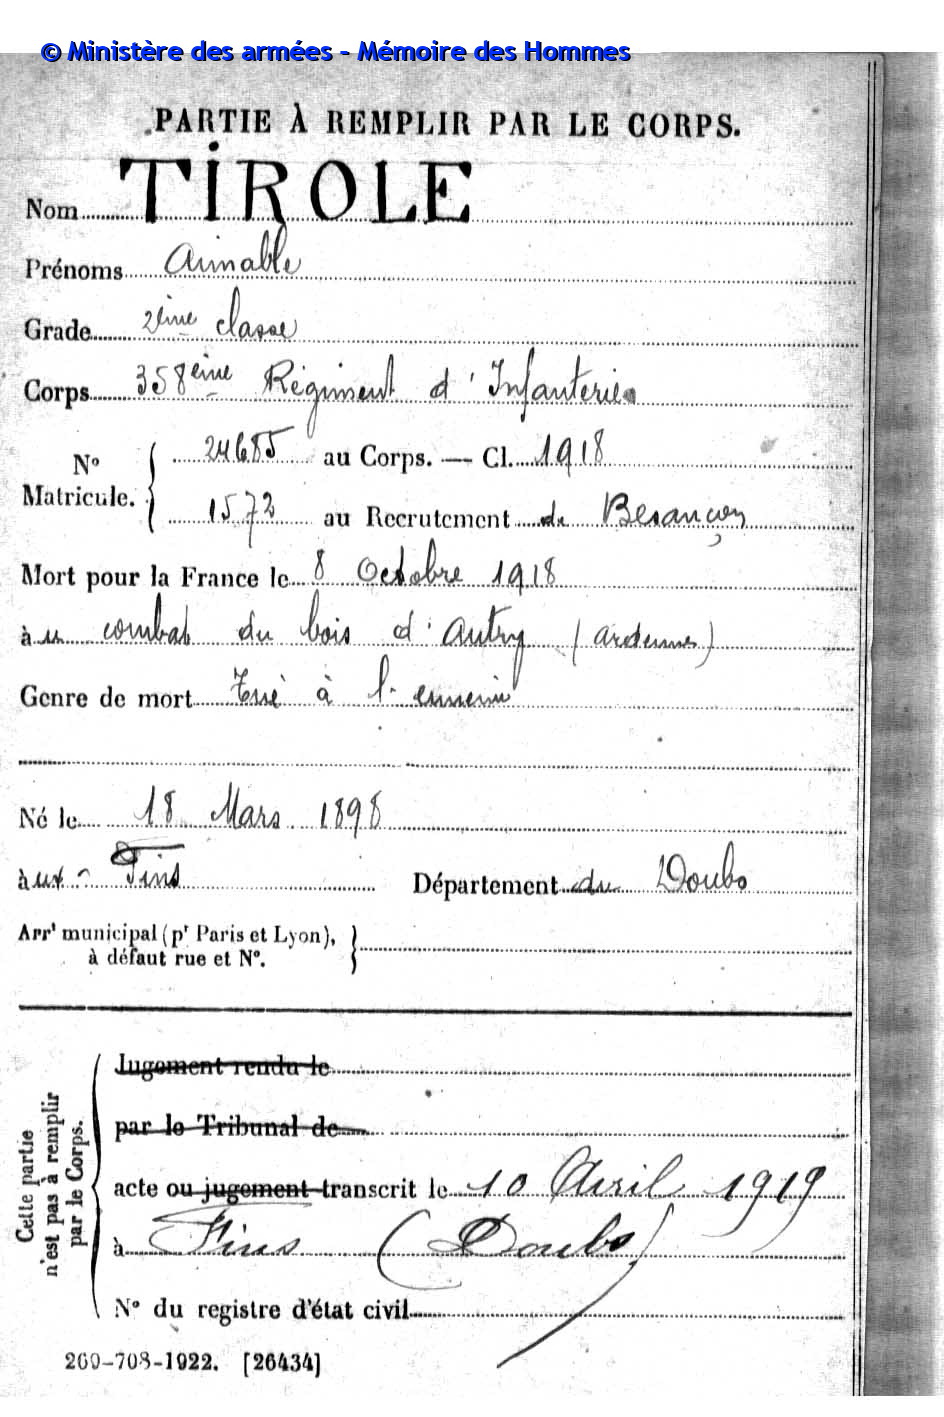 © Ministère des armées - Mémoire des Hommes
PARTIE À REMPLIR PAR LE CORPS.
Nom TIROLE
Prénoms Aimable
Grade 2ème classe
Corps 358ème Régiment d'Infanterie
N° Matricule. 24685 au Corps. — Cl. 1918
1572 au Recrutement de Besançon
Mort pour la France le 8 Octobre 1918
à u combat du bois d'Autry (Ardennes)
Genre de mort Tué à l'ennemi
Né le 18 Mars 1898
à ux Fins Département du Doubs
Arrt municipal (pr Paris et Lyon),
à défaut rue et N°.
Cette partie
n'est pas à remplir
par le Corps.
Jugement rendu le
par le Tribunal de
acte ou jugement transcrit le 10 Avril 1919
à Fins (Doubs)
N° du registre d'état civil
260-708-1922. [26434]